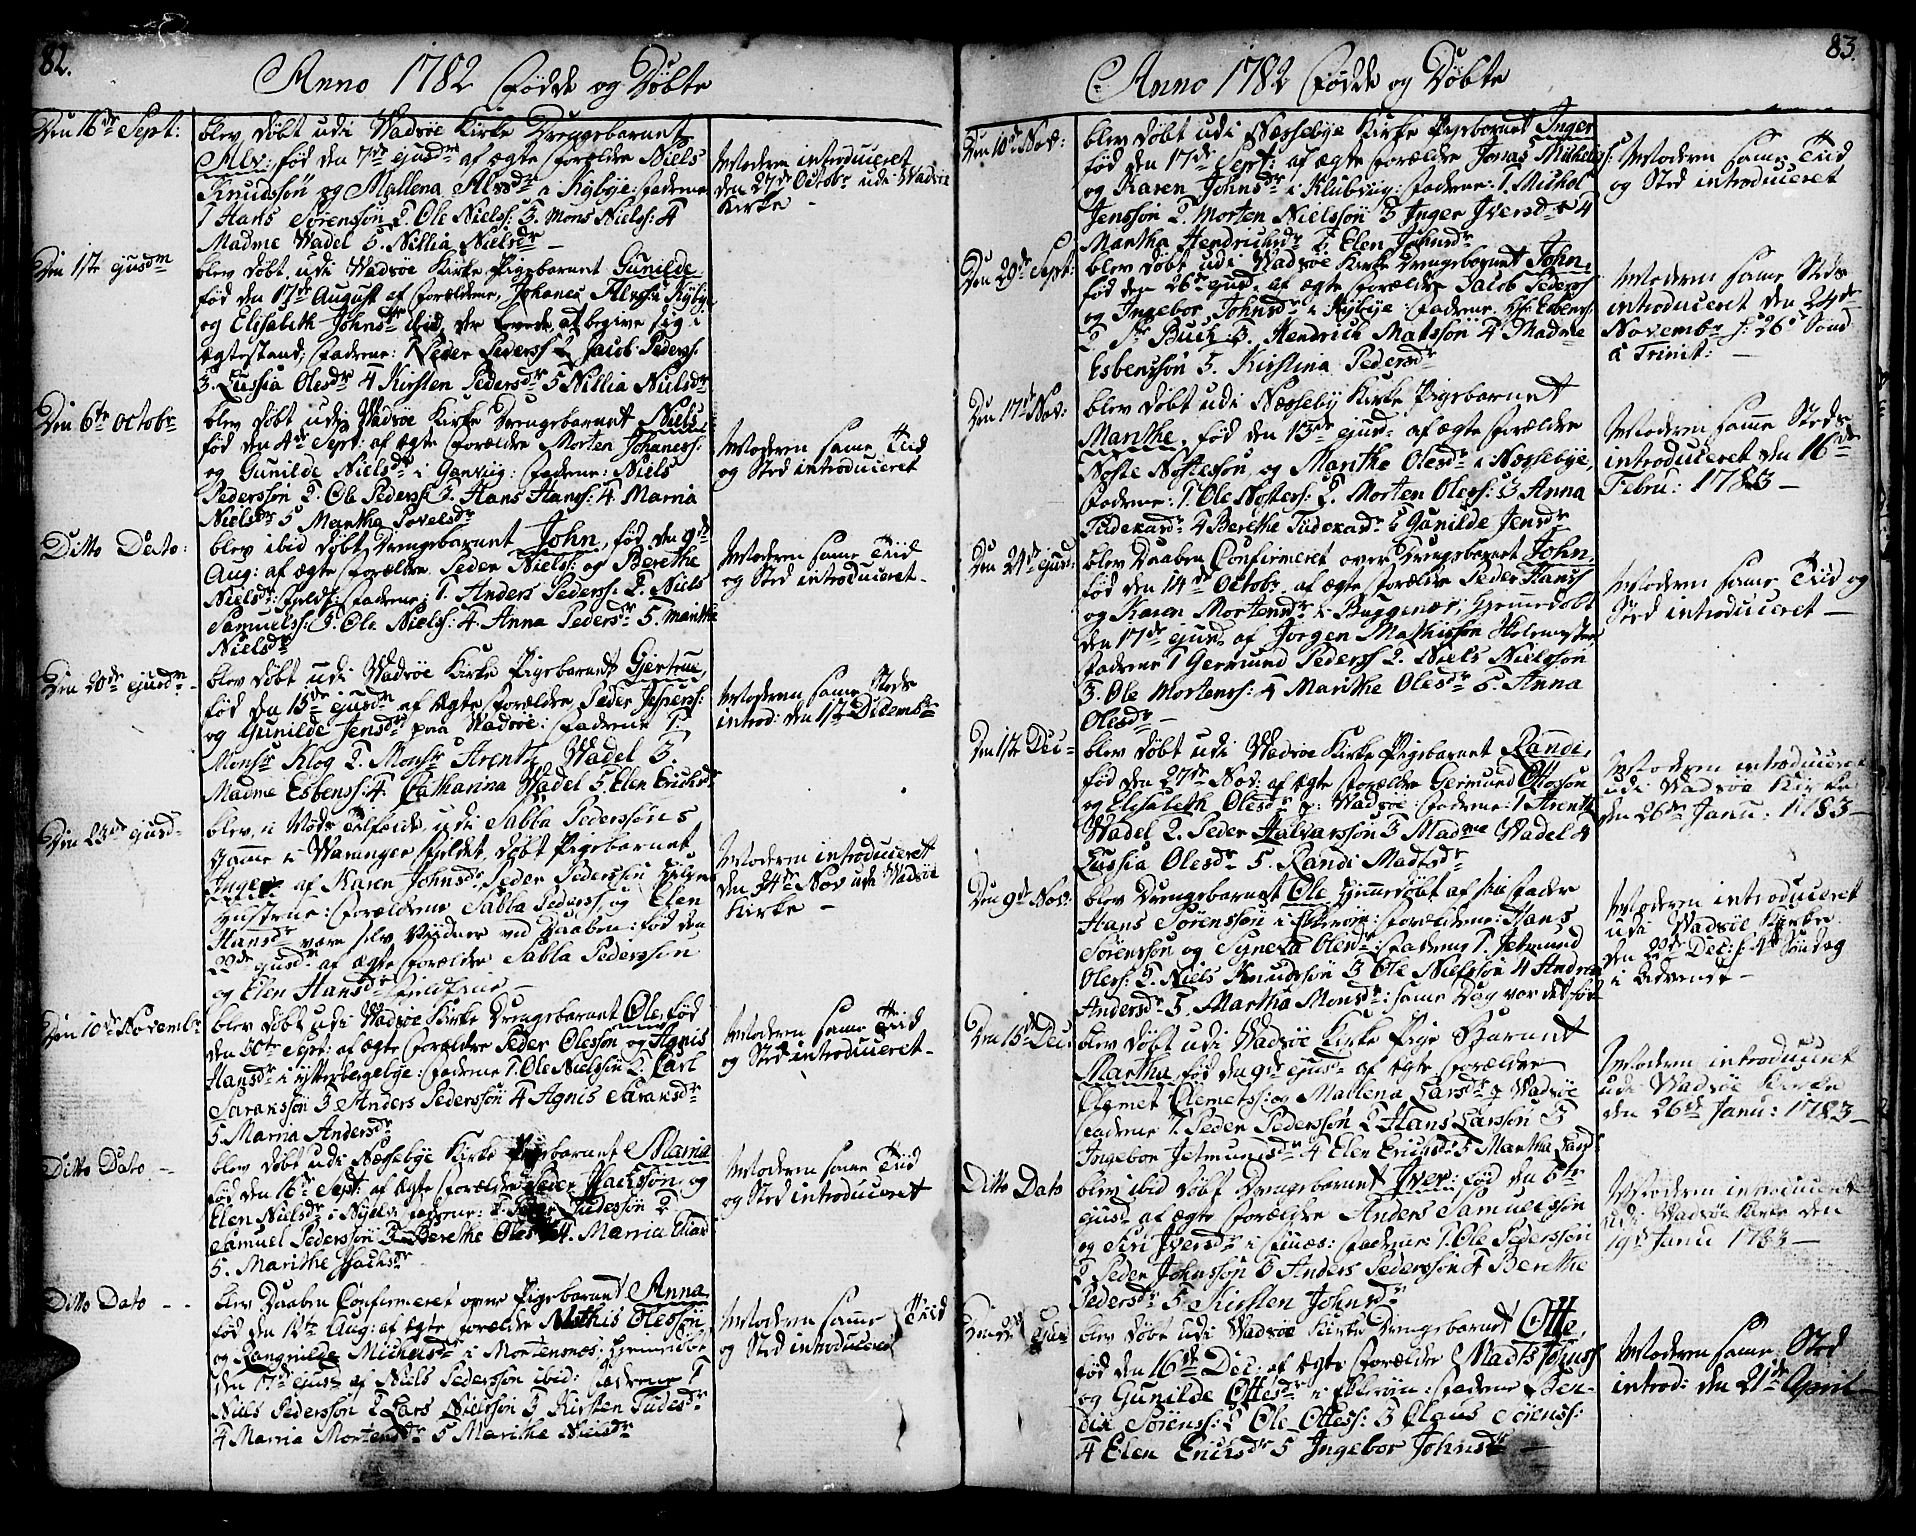 82.
Anno 1782 Fødde og Døbte
Den 16de Sept:
blev døbt udi Wadsøe Kirke Drengebarnet
Alv: fød den 7de ejusdm af ægte Forældre Niels
Knudssøn og Mallena Alvsdr i Kybye: Faderne
1 Hans Sørenssøn 2 Ole Nielss: 3. Mons Nielss: 4
Madme Wadel 5. Nillia Nielsdr
Moderen introduceret
den 27de Octobr udi Wadsøe
Kirke
Den 1ste ejusdm
blev døbt udi Wadsøe Kirke Pigebarnet Gunilde
fød den 17de August af Forældrene, Johanes Alvss i Kybye
og Elisabeth Johnsdr ibid, der lovede at begive sig i
Ægtestand; Faderne: 1 Peder Pederss 2 Jacob Pederss:
3. Lussia Olesdr 4 Kirsten Pedersdr 5 Nillia Nielsdr
Den 6te Octobr
blev døbt udi Wadsøe Kirke Drengebarnet Niels
fød den 4de Sept: af ægte Forældre Morten Johaness:
og Gunilde Nielsdr i Ganviig: Faderne: Niels
Pederssøn 2. Ole Pederss: 3. Hans Hanss: 4. Marria
Nielsdr 5 Martha Povelsdr
Moderen same Tiid
og Sted introduceret
Ditto Dato:
blev ibid døbt Drengebarnet John, fød den 9de
Aug: af ægte Forældre Peder Nielss: og Berethe
Nielsdr: Faderne: 1. Anders Pederss: 2. Niels
Samuelss: 3. Ole Nielss: 4. Anna Pedersdr 5. Marithe
Nielsdr
Moderen same Tiid
og Sted introduceret
Den 20de ejusdm
blev døbt udi Wadsøe Kirke Pigebarnet Giertrue,
fød den 15de ejusdm af Ægte Forældre Peder Jesperss:
og Gunilde Jensdr paa Wadsøe: Faderne 1.
Monsr Klog 2. Monsr Arentz Wadel 3.
Madme Esbenss: 4. Catharina Wadel 5. Elen Ericksdr
Moderen same Steds
introd: den 1ste Decembr
Den 23de ejusd
blev i Nøds Tilfælde, udi Sabba Pederssøns
Gamme i Waranger Fieldet, døbt Pigebarnet
Inger af Karen Johnsdr Peder Pederssøn
Hustrue: Forældrene Sabba Pederss, og Elen
Hansdr vare selv Vidner ved Daaben: fød den
22de ejusdm af ægte Forældre Sabba Pederssøn
og Elen Hansdr
Moderen introduceret
den 24de Nov udi Wadsøe
Kirke
Den 10de Novembr
blev døbt udi Wadsøe Kirke Drengebarnet Ole, fød
den 30te Sept: af ægte Forældre Peder Olessøn og Agnis
Hansdr i Ytterbergebye: Faderne 1. Ole Nielssøn 2. Carl
Sarakssøn 3 Anders Pederssøn 4 Agnis Saraksdr
5 Marria Andersdr
Moderen same Tiid
og Sted introduceret
Ditto Dato
blev døbt udi Næssebye Kirke Pigebarnet Marria
fød den 16de Sept: af ægte Forældre Peder Isackssøn, og
Elen Nielsdr i Nyelv Faderne: 1. Tudessøn 2
Samuel Pederssøn 3 Berethe Olesdr 4. Marria
5. Marithe Isachsdr
Moderen same Tiid
og Sted introduceret
Ditto Dato
blev Daaben Confirmeret over Pigebarnet Anna
fød den 12te Aug: af ægte Forældre Mathis Olessøn
og Rangnilde Michelsdr i Mortensnæs: hjemmedøbt
den 17de ejusd af Niels Pederssøn ibid: Faderne 1
Niels Pederssøn 2 Lars Nielssøn 3 Kirsten Tudesdr
4 Marria Mortensdr 5 Marithe Nielsdr
Moderen same Tiid
og Sted introduceret
83.
Anno 1782 Fødde og Døbte
Den 10de Nov:
blev døbt udi Næssebye Kirke Pigebarnet Inger
fød den 17de Sept: af ægte Forældre Jonas Michelss:
og Karen Johnsdr i Klubviig: Faderne: 1 Michel
Jenssøn 2. Morten Nielssøn 3 Inger Iversdr 4
Martha Hendrichsdr 5 Elen Johnsdr
Moderen same Tiid
og Sted introduceret
Den 29de Sept:
blev døbt udi Wadsøe Kirke Drengebarnet John,
fød den 26de ejusd af ægte Forældre Jacob Pederss
og Ingebor Johnsdr i Kybye: Faderne. Hr Esbens:
2 Sr Buck 3. Hendrick Matssøn 4 Madme
Esbenssøn 5. Kirstina Pedersdr
Moderen same Steds
introduceret den 24de
Novembr s: 26d Sönd
a Trinit:
Den 17de Nov:
blev døbt udi Næsseby Kirke Pigebarnet
Marithe, fød den 13de ejusd af ægte Forældre
Noste Nostessøn, og Marithe Olesdr i Næssebye,
Faderne: 1. Ole Nostess: 2. Morten Oless: 3 Anna
Tudesadr 4 Berethe Tudesadr 5 Gunilde Jensdr
Moderen same Steds
introduceret den 16de
Febru: 1783
Den 24de ejusd
blev Daaben Confirmeret over Drengebarnet John
fød den 14de Octobr af ægte Forældre Peder Hanss
og Karen Mortensdr i Buggenæs; hjemmedøbt
den 17de ejusd af Jørgen Mathissøn Skolemester
Faderne 1 Germund Pederss 2. Niels Nielssøn
3. Ole Mortenss: 4 Marithe Olesdr 5. Anna
Olesdr
Moderen same Tiid og
Sted introduceret
Den 1ste Dec
blev døbt udi Wadsøe Kirke Pigebarnet Randi,
fød den 27de Nov: af ægte Forældre Germund Ottossøn
og Elisabeth Olesdr p: Wadsøe: Faderne: 1 Arentz
Wadel 2. Peder Halvarssøn 3 Madme Wadel 4
Lussia Olesdr 5. Randi Madtsdr
Moderen introduceret
udi Wadsøe Kirke
den 26de Janu: 1783
Den 9de Nov:
blev Drengebarnet Ole hjemmedøbt af sin Fader
Hans Sørenssøn i Ekkerøn: Forældrene: Hans
Sørenssøn og Syneva Olesdr: Faderne 1. Jetmund
Oless: 2. Niels Knudssøn 3 Ole Nielssøn 4 Andrea
Andersdr 5. Martha Monsdr: same Dag var det fød
Moderen introduceret
udi Wadsøe Kirke
den 22de Dec: s: 4de Söndag
i Advendt
Den 15de Dec:
blev døbt udi Wadsøe Kirke Pige Barnet
Martha fød den 9de ejusd af ægte Forældre
Clemet Clemetss: og Mallena Larsdr p Wadsøe
Faderne 1. Peder Pederssøn 2 Hans Larssøn 3
Ingebor Jetmundsdr 4 Elen Ericksdr 5 Martha Larsdr
Moderen introduceret
udi Wadsøe Kirke
den 26de Janu: 1783
Ditto Dato
blev ibid døbt Drengebarnet Iver: fød den 6te
ejusd af ægte Forældre Anders Samuelssøn
og Siri Iversdr i Finnæs: Faderne 1. Ole Pederssøn
2 Peder Johnssøn 3 Anders Pederssøn 4 Berethe
Pedersdr 5 Kirsten Johnsdr
Moderen introduceret
udi Wadsøe Kirke den
19de Janu 1783
blev døbt udi Wadsøe Kirke Drengebarnet Otte,
fød den 16de Dec: af ægte Forældre Madts Johnss
og Gunilde Ottesdr i Ekkerøn: Faderne Ben-
dix Sørenss: 2 Ole Ottess: 3 Claus Sørenss:
4 Elen Ericksdr 5 Ingebor Johnsdr
Moderen same Sted
introd: den 21de April